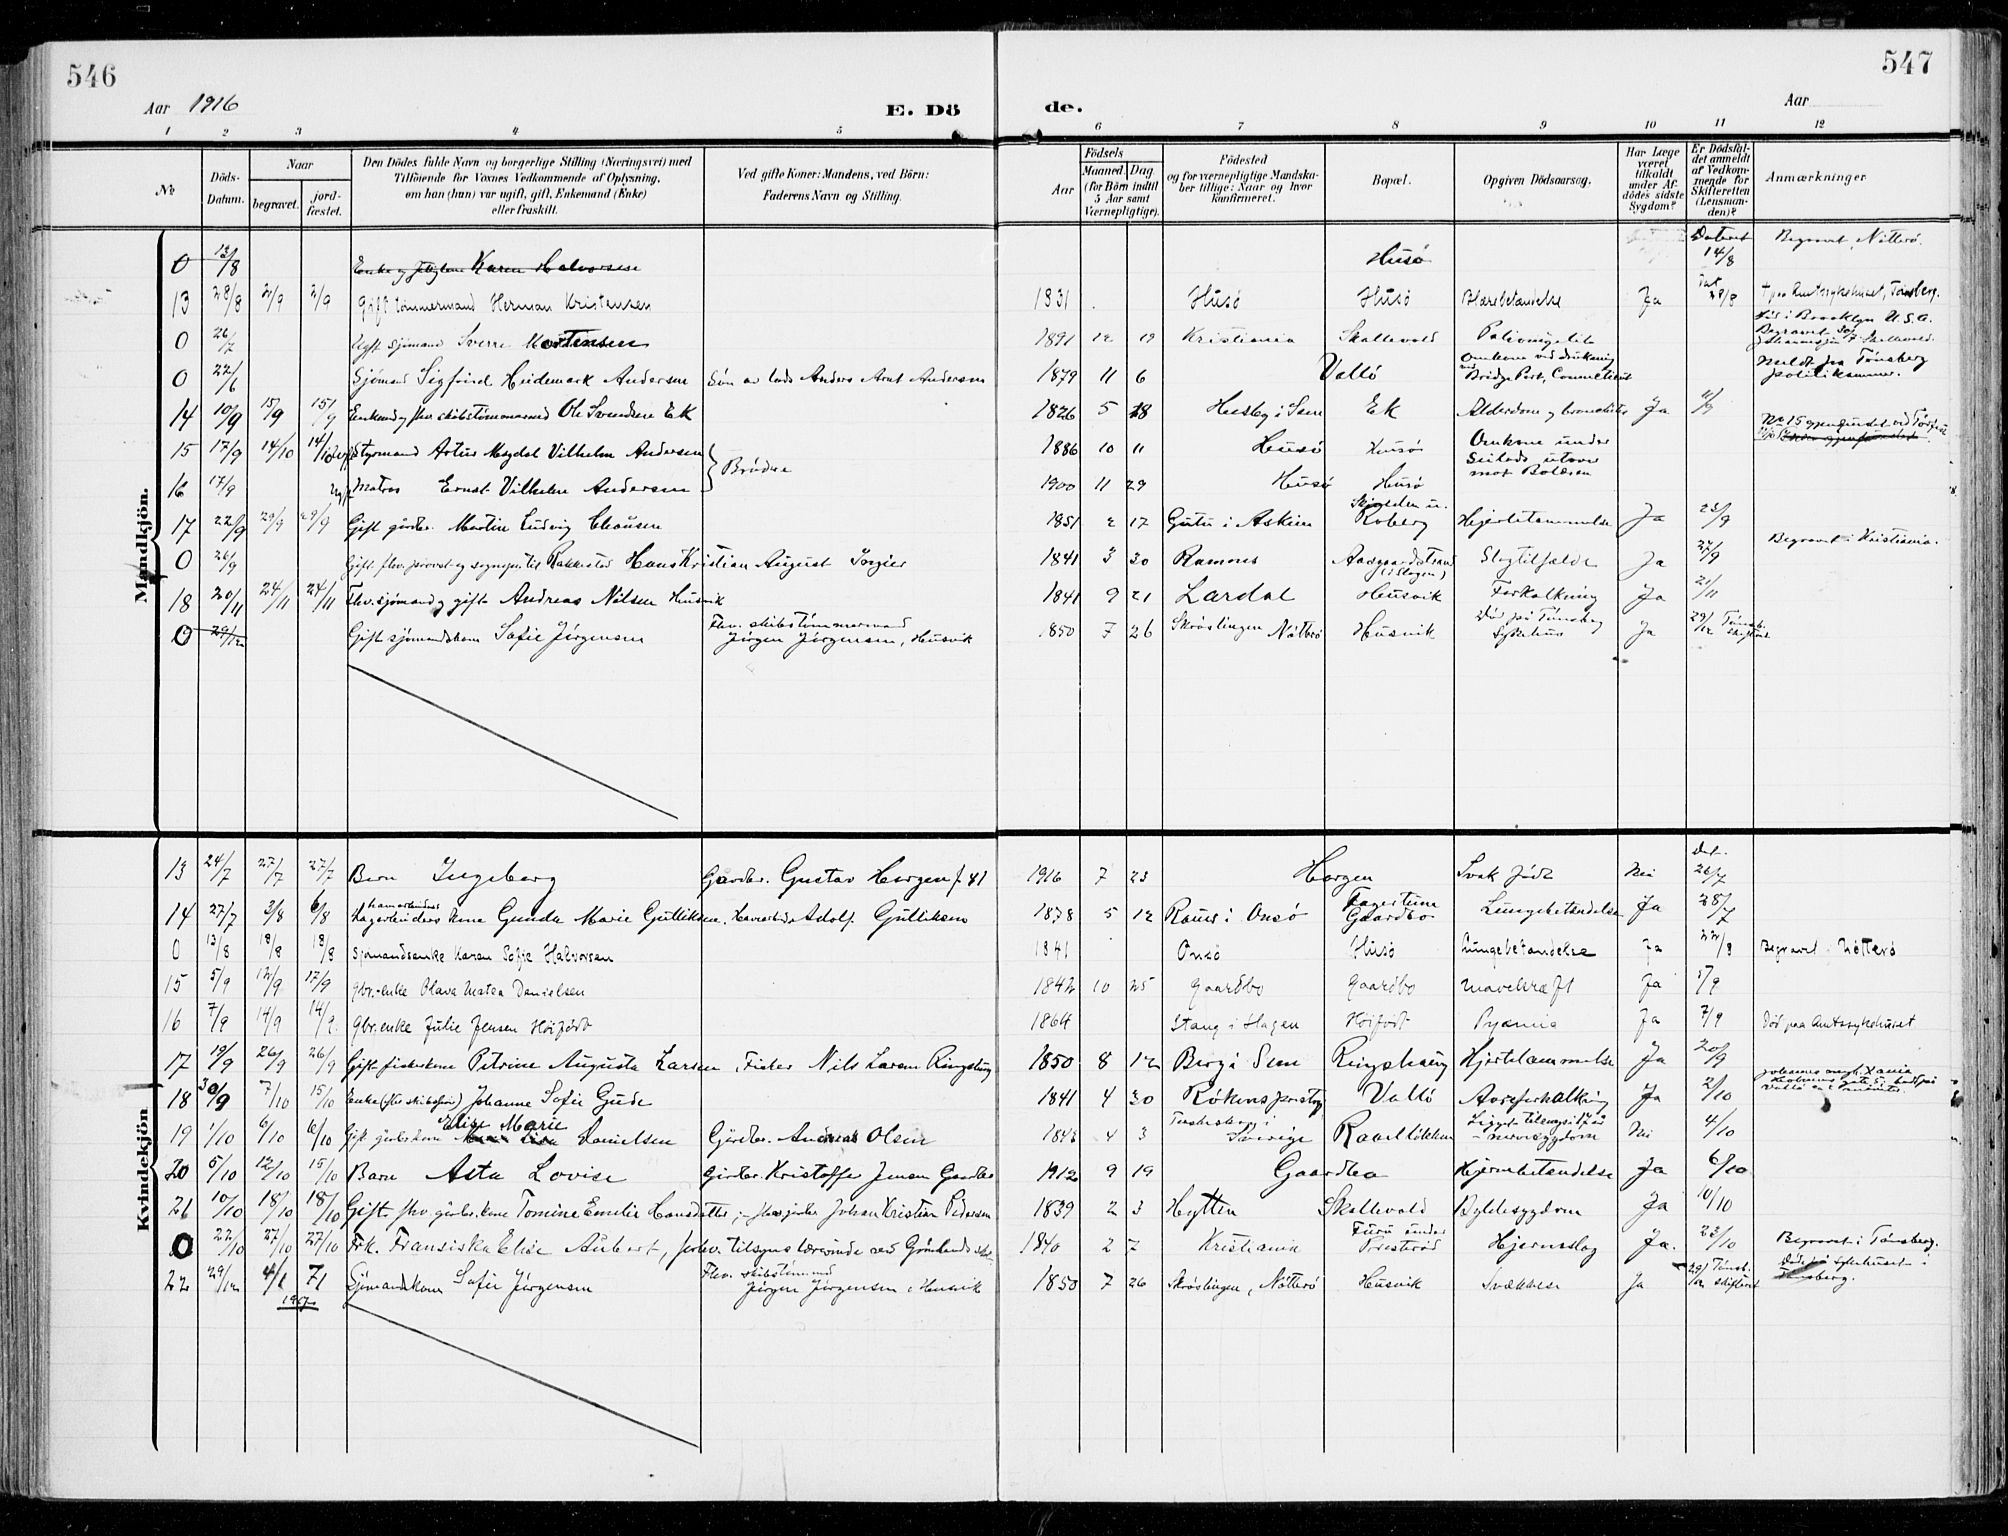 546
547
Aar 1916
E. Dö
de.
Aar
1 2 3 4 5 6 7 8 9 10 11 12
№
Döds-Datum.
Naar
begravet.
jord-fæstet.
Den Dödes fulde Navn og borgerlige Stilling (Næringsvei) med
Tilföiende for Voxnes Vedkommende af Oplysning,
om han (hun) var ugift, gift, Enkemand (Enke)
eller fraskilt.
Ved gifte Koner: Mandens, ved Börn:
Faderens Navn og Stilling.
Födsels
Aar
Maaned.
Dag
(for Börn indtil
5 Aar samt
Værnepligtige).
Födested
og for værnepligtige Mandska-
ber tillige: Naar og hvor
konfirmeret.
Bopæl.
Opgiven Dödsaarsag.
Har Læge
været
tilkaldt
under Af-
dödes sidste
Sygdom?
Er Dödsfal-
det anmeldt
af Vedkom-
mende for
Skifteretten
(Lensman-
den)?
Anmærkninger
Mandkjön.
0 13/8 Karen Halvorsen Husö Dateret 14/8 Begravet, Nötterö.
13 28/8 2/9 2/9 Gift tömmermand Herman Kristensen 1831 Husö Husö Blærebetændelse Ja Amtssykehuset, Tönsberg.
0 26/7 Ugift sjömand Sverre Mortensen 1891 12 19 Kristiania Skallevold Död i Brooklyn U.S.A.
0 22/6 Sjömand Sigfried Heidemark Andersen Sön av lods Anders Arnt Andersen 1879 11 6 Vallö Omkom ved drukning ved Bridge Port, Connecticut Meldt fra Tönsberg politikammer.
14 10/9 15/9 15/9 Enkemand og fhv. skibstömmermand Ole Svendsen Ek 1826 5 18 Husby i Sem Ek Alderdom og bronchitis Ja 11/9
15 17/9 14/10 14/10 Styrmand Artur Magdal Vilhelm Andersen } Brödre 1886 10 11 Husö Husö Omkom under seilads utover mot Bolæren No 15 gjenfundet ved
16 17/9 Ugift Matros Ernst Vilhelm Andersen 1900 11 29 Husö Husö
17 22/9 29/9 29/9 Gift gårdbr. Martin Ludvig Clausen 1851 2 17 Gutu i Askim Roberg Hjertelammelse Ja 23/9
0 26/9 Gift fhv. provst og sognepr. til Rakkestad Hans Kristian August 1841 3 30 Ramnes Aasgaardstrand (i Slagen) Slagtilfælde Ja 27/9 Begravet i Kristiania.
18 20/11 24/11 24/11 Fhv. sjömand gift Andreas Nilsen Husvik 1841 9 21 Lardal Husvik Forkalkning Ja 21/11
0 29/12 Gift sjömandskone Sofie Jörgensen Fhv. skibstömmermand Jörgen Jörgensen, Husvik 1850 7 26 Skröslingen Nötterö Husvik Död på Tönsberg Sykehus Ja 29/12 Tönsb. skifteret
Kvindekjön
13 24/7 27/7 27/7 Barn Ingeborg Gårdbr. Gustav Horgen f. 81 1916 7 23 Horgen Svak född Nei Dat. 26/7
14 27/7 3/8 6/8 Gunda Marie Gulliksen, Adolf Gulliksen 1878 5 12 Raues i Onsö Gaardbo Lungebetændelse Ja 28/7
0 13/8 18/8 18/8 Sjömandsenke Karen Sofie Halvorsen 1841 Onsö Husö Lungebetændelse Ja 22/8 Begravet Nötterö
15 5/9 12/9 17/9 Gbr.-enke Olava Matea Danielsen 1842 10 25 Gaardbo Gaardbo Mavekræft Ja 5/9
16 7/9 14/9 14/9. Gbr. enke Julie Jensen Höijord 1864 Stang i Slagen Höijord Pyæmie Ja 7/9 Död paa Amtssykehuset
17 19/9 26/9 26/9 Gift fiskerkone Petrine Augusta Larsen, Fisker Nils Larsen Ringshaug 1850 8 12 Berg i Sem Ringshaug Hjertelammelse Ja 20/9
18 30/9 7/10 15/10 Enke (fhv. skibsförer) Johanne Sofie Gude 1841 4 30 Rökens præstegj Vallö Aareforkalkning Ja 2/10
19 1/10 6/10 6/10 Gift gårdbr.kone Elise Marie Danielsen Gårdbr. Andreas Olsen 1843 4 3 Sverige nervesygdom Nei 4/10
20 5/10 12/10 15/10 Barn Asta Lovise Gårdbr. Kristoffer Jensen Gaardbo 1912 9 19 Gaardbo Hjernebetændelse Ja 6/10
21 10/10 18/10 18/10 Gift fhv. gårdbr. kone Tomine Emelie Hansdatter; Johan Kristian Pedersen 1839 2 3 Hytten Skallevold Byldesygdom Ja 10/10
0 22/10 27/10 27/10 Frk. Fransiska Elise Aubert, forhv. tilsyns lærerinde ved Grönlands skole 1840 2 7 Kristiania Furu under Træströd Hjerneslag Ja. 23/10 Begravet i Tönsberg.
22 29/12 4/1 7/1 Sjömandskone Sofie Jörgensen Fhv. skibstömmermd Jörgen Jörgensen i Husvik 1850 7 26 Skröslingen, Nötterö Husvik Svækkelse Ja 29/12 Tönsb. skifteret Död på sykehuset i Tönsberg.
1917